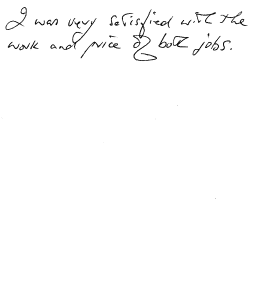 I was very satisfied with the
work and price of both jobs.